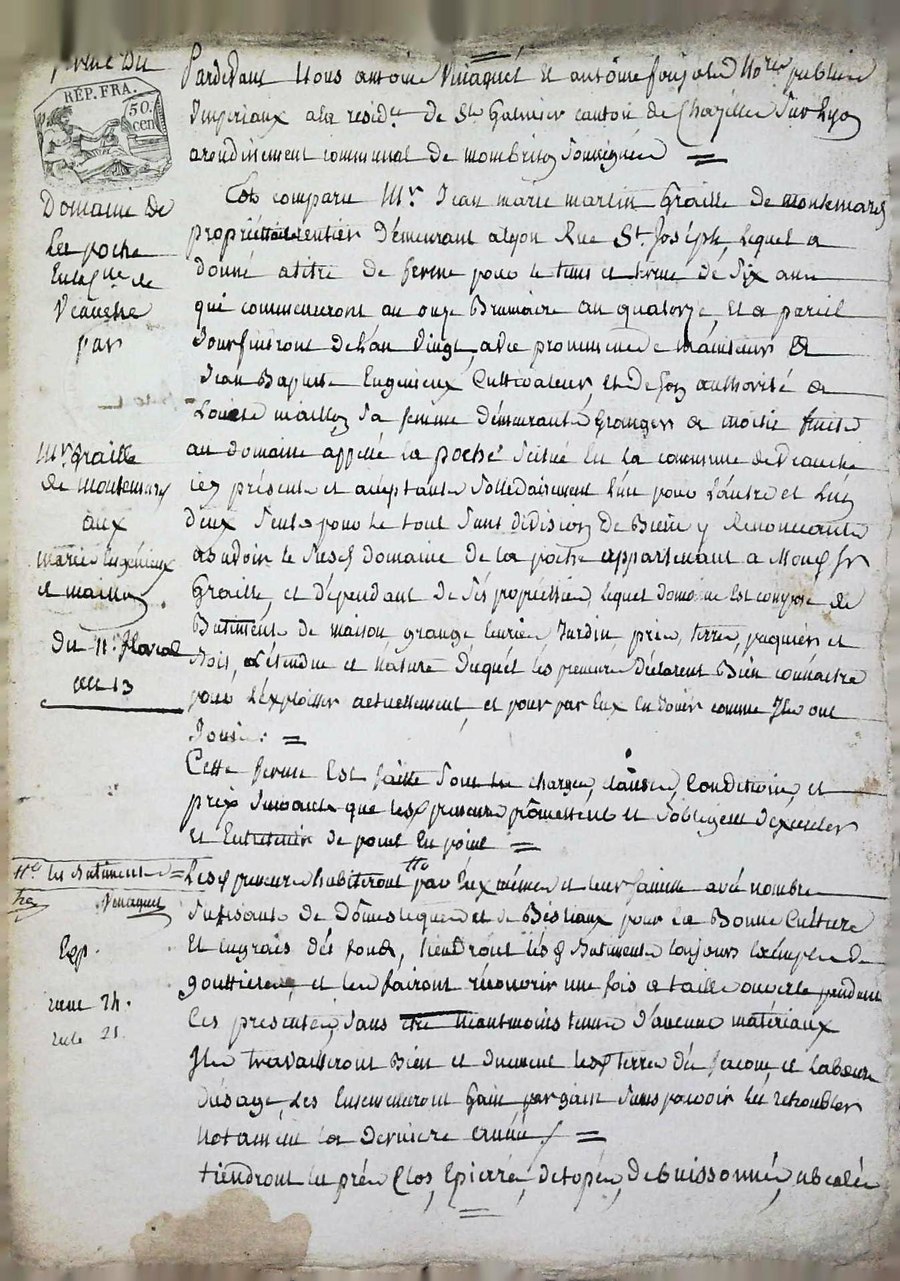 ferme du
RÉP. FRA.
50.
cen
Domaine de
La poche
de
Veauche
par
Mr. Graille
de montemard
aux
mariés Eugenieux
et maillon.
Du 11e. floreal
an 13
les Batiments
Vinaquet
Exp.
21.
Pardevant Nous antoine Vinaquet et antoine Nores. publics
Imperiaux ala reside. de St Galmier canton de Chazelles Sur Lyon
arondissement communal de monbrison Soussignés
Est comparu Mr. Jean marie martin Graille de montemard
propriettaire rentier démeurant alyon Rue St. Joseph, lequel a
donné atitre de ferme pour le tems et terme de Six ans
qui commenceront au onze Brumaire an quatorze, et a pareil
Jour finiront de Lan Vingt, avec promesse de maintenir a
Jean Baptiste Eugenieux Cultivateur, et de son authorité a
Louise maillon Sa femme démeurants Grangers a moitié fruits
au domaine appellé la poche Scitué en la commune de Veauche
icy présents et acceptants Sollidairement L'un pour L'autre et L'un
deux Seul pour le tout Sans division de Biens y Renoncants
asavoir le Susd domaine de la poche appartenant a mond Sr
Graille, et dépendant de Sés propriétés, lequel domaine Est composé de
Batiments de maison grange Ecurie, Jardin, prés, terres, paquiers et
Bois, L'étendue et Nature désquels les preneurs Déclarent Bien connaitre
pour L'exploiter actuellement, et pour par Eux En Jouir comme Ils ont
Joui. =
Cette ferme Est faitte Sous les charges, clauses, Conditions, et
prix Suivants que lesd preneurs promettent et S'obligent d'executer
et Entretenir de point En point =
Lesd preneurs habiteront par Eux mêmes et leur famille avec nombre
Sufisants de Domestiques et de Béstiaux pour la Bonne Culture
Et Engrais dés fonds, tiendront lés d Batiments toujours Exempts de
gouttieres, et les fairont récouvrir une fois a taille ouverte pendant
Les presentes, Sans être Néantmoins tenus d'aucuns matériaux
Ils travailleront Bien et duement lesd terres de facons et Labours
D'usage, Les Ensemenceront Gain par gain Sans pouvoir les retroubler
Notament la Derniere année =
tiendront les prés Clos, Epierrés, détopés, débuissonnés,